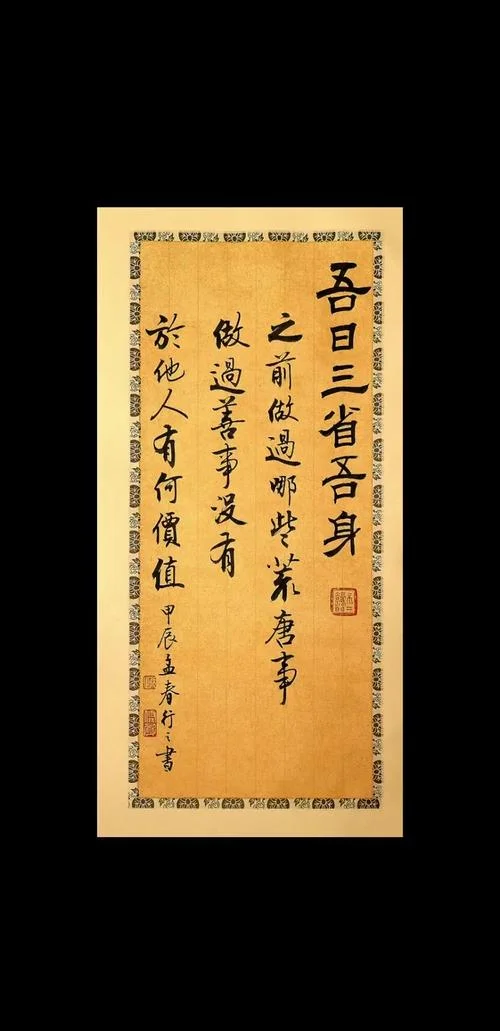 吾日三省吾身
之前做過哪些荒唐事
做過善事没有
於他人有何價值
甲辰孟春行之書